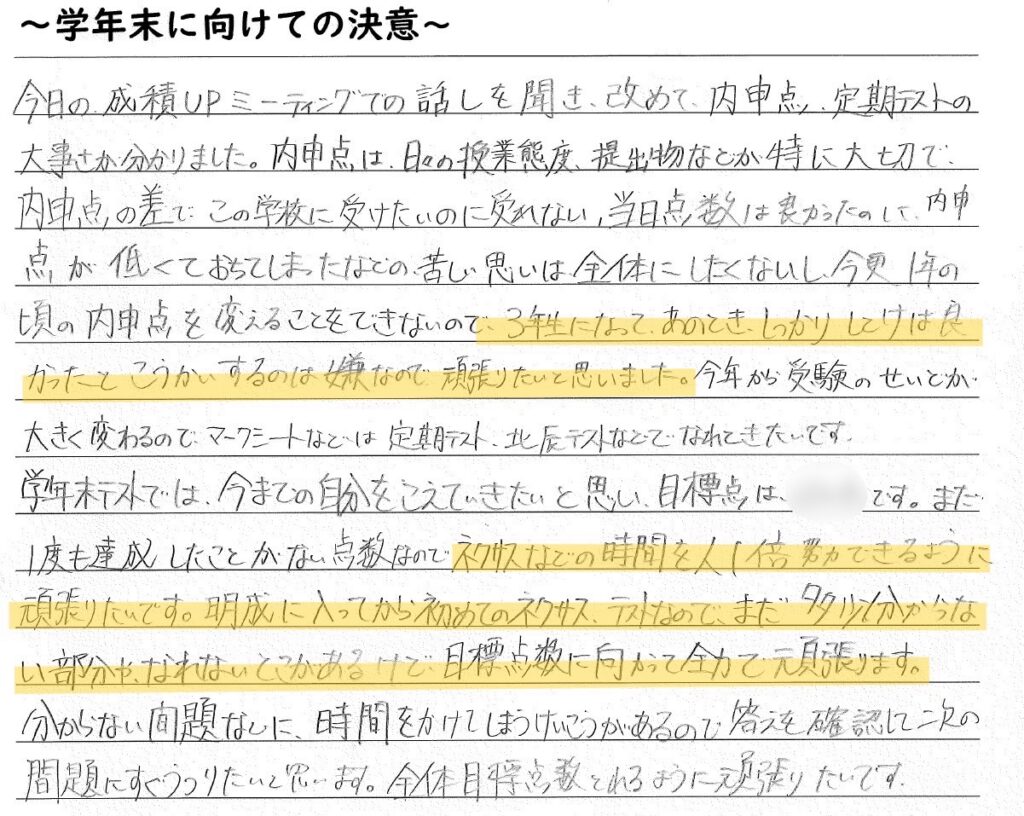 ～学年末に向けての決意～
今日の成積UPミーティングでの話しを聞き、改めて、内申点、定期テストの
大事さが分かりました。内申点は、日々の授業態度、提出物などが特に大切で、
内申点の差で、この学校に受けたいのに受れない、当日点数は良かったのに、内申
点が低くておちてしまったなどの苦しい思いは全体にしたくないし、今更1年の
頃の内申点を変えることをできないので、3年生になって、あのとき、しっかりしとけば良
かったとこうかいするのは嫌なので頑張りたいと思いました。今年から受験のせいどが
大きく変わるので、マークシートなどは定期テスト、北辰テストなどでなれときたいです。
学年末テストでは、今までの自分をこえていきたいと思い、目標点は、です。まだ
1度も達成したことがない点数なのでネクサスなどの時間を人1倍努力できるように
頑張りたいです。明成に入ってから初めてのネクサス、テストなので、まだ分からな
い部分や、なれないとこがあるけど、目標点数に向かって全力で頑張ります。
分からない問題などに、時間をかけてしまうけいこうがあるので答えを確認して次の
問題にすぐうつりたいと思います。全体目標点数とれるように頑張りたいです。